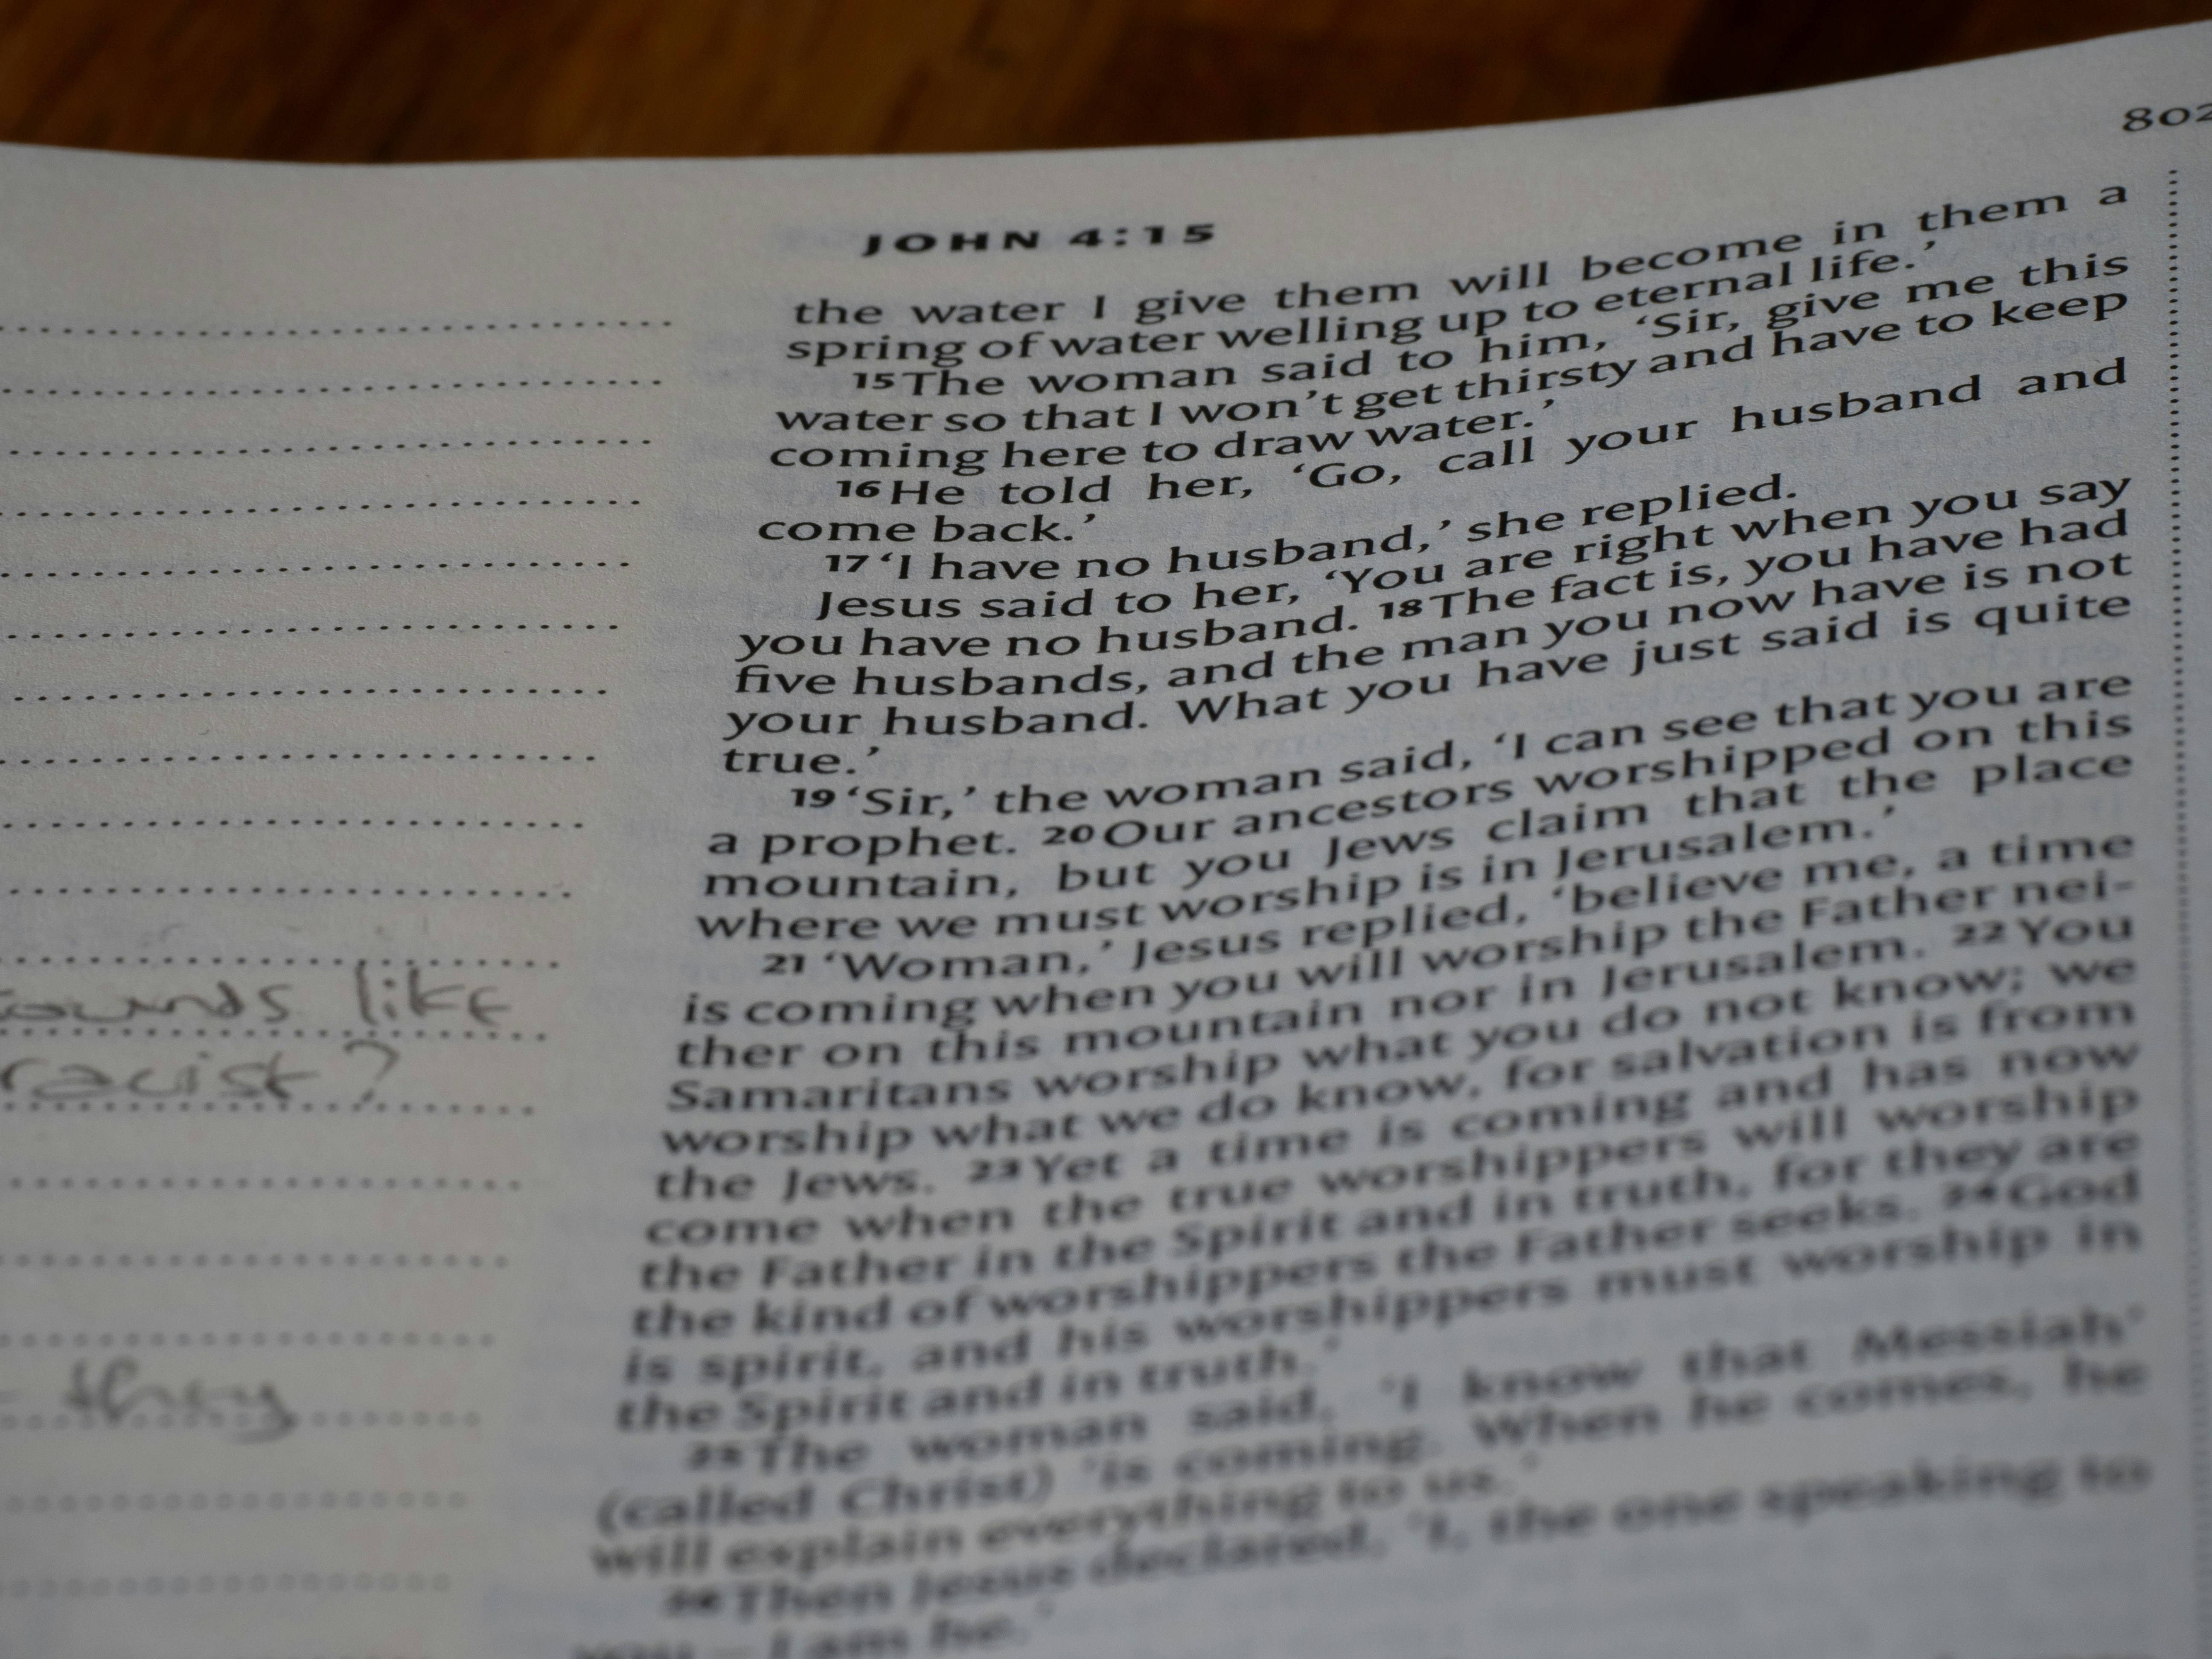 802
JOHN 4:15
the water I give them will become in them a
spring of water welling up to eternal life.’
15 The woman said to him, ‘Sir, give me this
water so that I won’t get thirsty and have to keep
coming here to draw water.’
16 He told her, ‘Go, call your husband and
come back.’
17 ‘I have no husband,’ she replied.
Jesus said to her, ‘You are right when you say
you have no husband. 18 The fact is, you have had
five husbands, and the man you now have is not
your husband. What you have just said is quite
true.’
19 ‘Sir,’ the woman said, ‘I can see that you are
a prophet. 20 Our ancestors worshipped on this
mountain, but you Jews claim that the place
where we must worship is in Jerusalem.’
21 ‘Woman,’ Jesus replied, ‘believe me, a time
is coming when you will worship the Father nei-
ther on this mountain nor in Jerusalem. 22 You
Samaritans worship what you do not know; we
worship what we do know, for salvation is from
the Jews. 23 Yet a time is coming and has now
come when the true worshippers will worship
the Father in the Spirit and in truth, for they are
the kind of worshippers the Father seeks. 24 God
is spirit, and his worshippers must worship in
the Spirit and in truth.’
25 The woman said, ‘I know that Messiah’
(called Christ) ‘is coming. When he comes, he
will explain everything to us.’
26 Then Jesus declared, ‘I, the one speaking to
you – I am he.’
like
racist?
- they